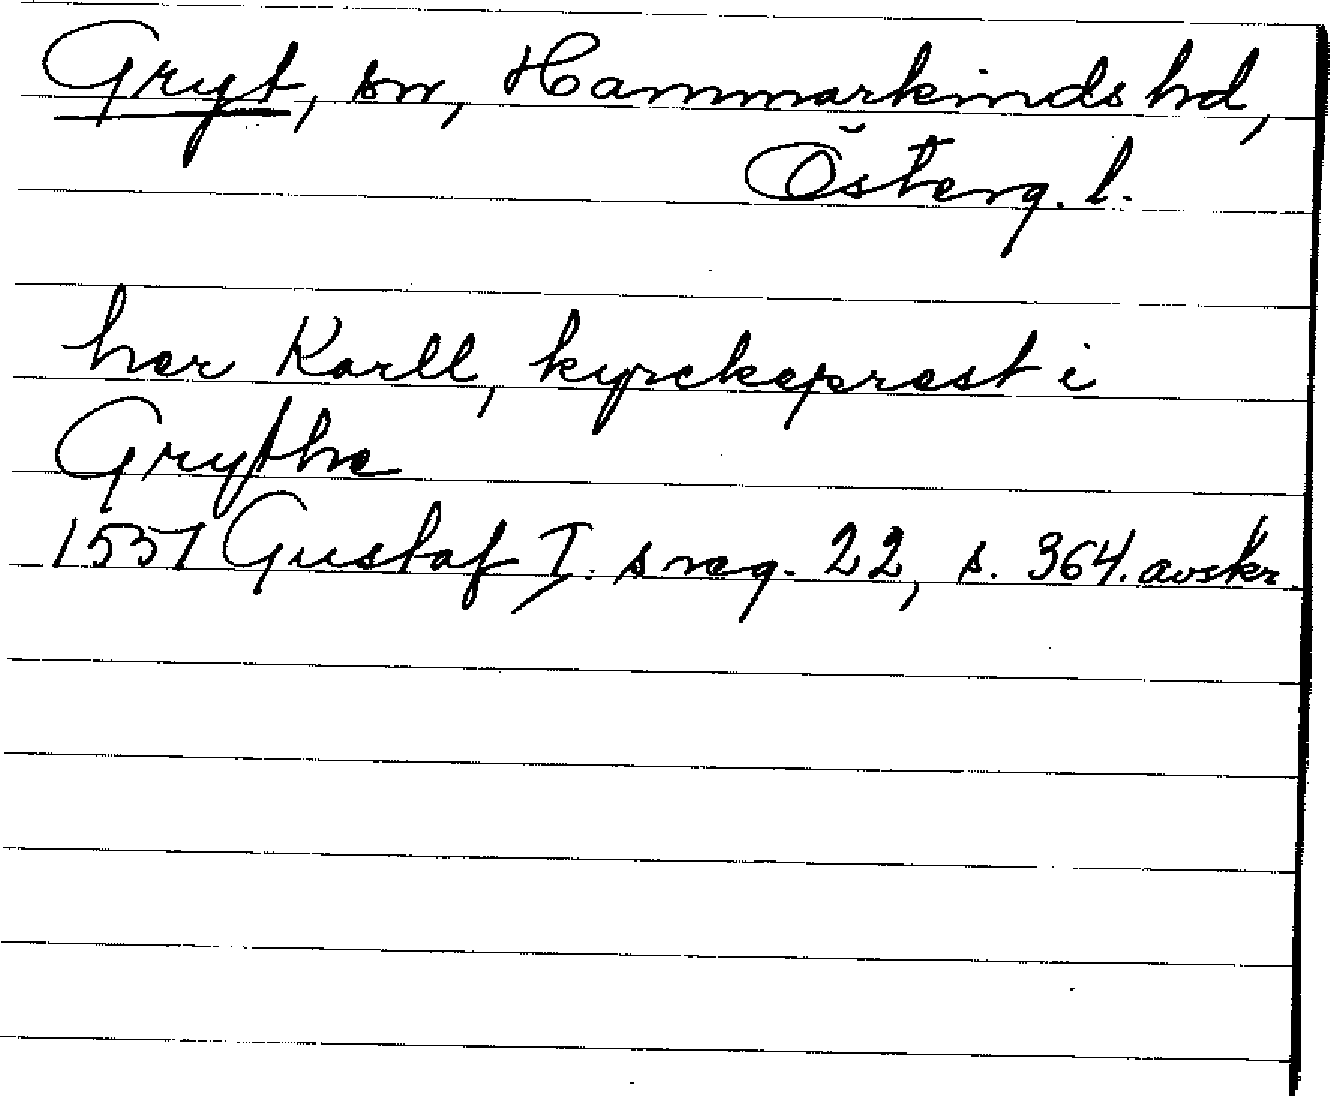 Gryt, sn, Hammarkinds hd,
Österg. l.
her Karll, kyrckeprest i
Grythe
1551 Gustaf I. s reg. 22, s. 364. avskr.